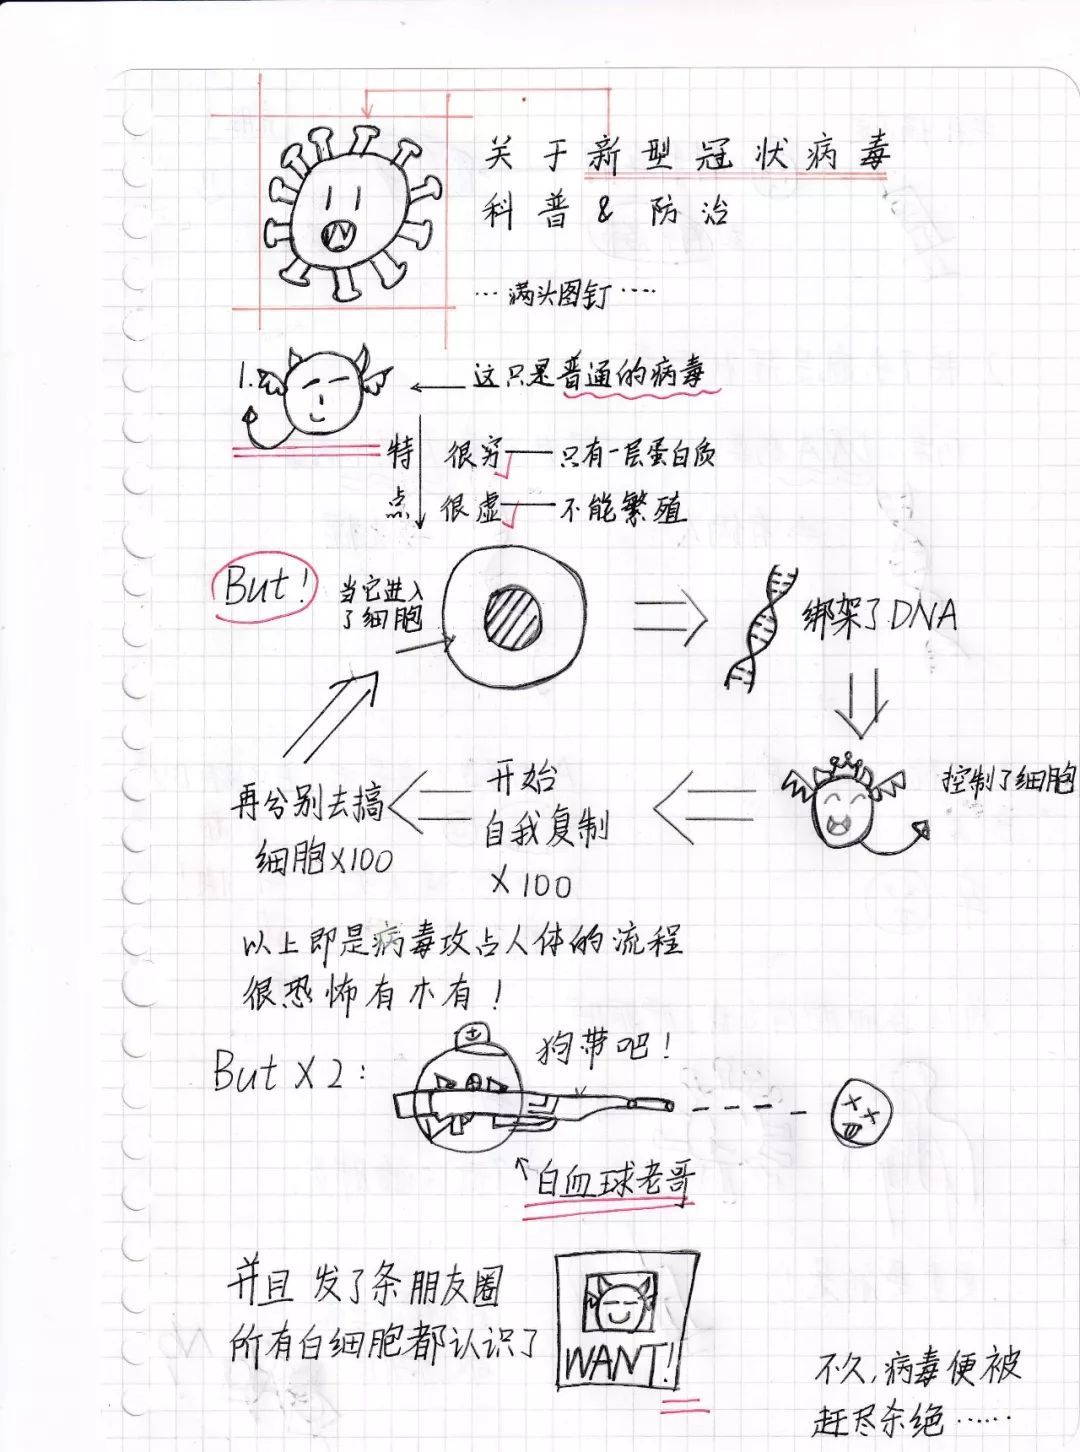 关于新型冠状病毒
科普&防治
…满头图钉……
1.
这只是普通的病毒
特点
很穷——只有一层蛋白质
很虚——不能繁殖
But!
当它进入
了细胞
绑架了DNA
控制了细胞
开始
自我复制
×100
再分别去搞
细胞×100
以上即是病毒攻占人体的流程
很恐怖有木有!
But×2:
狗带吧!
白血球老哥
并且发了条朋友圈
所有白细胞都认识了
WANT!
不久,病毒便被
赶尽杀绝……